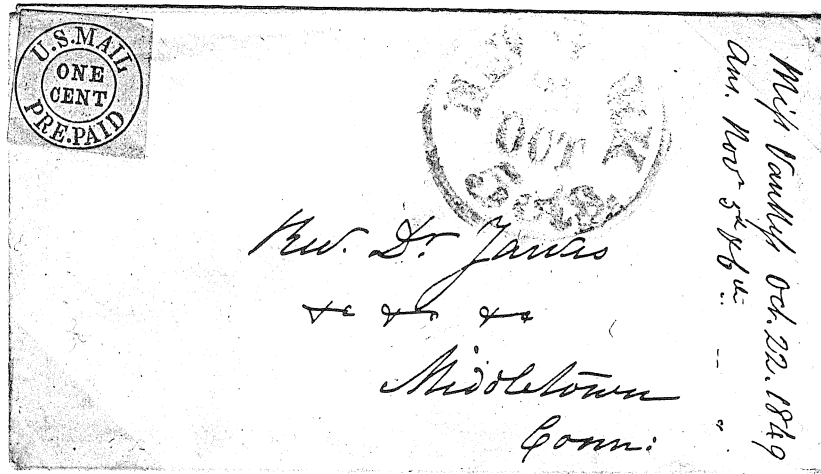 U.S.MAIL
ONE
CENT
PRE.PAID
NEW YORK
OCT
5 cts
Rev. Dr. Jarvis
&c &c &c
Middletown
Conn:
Miss Vanness Oct. 22. 1849
Ans. Nov 5th & 6th